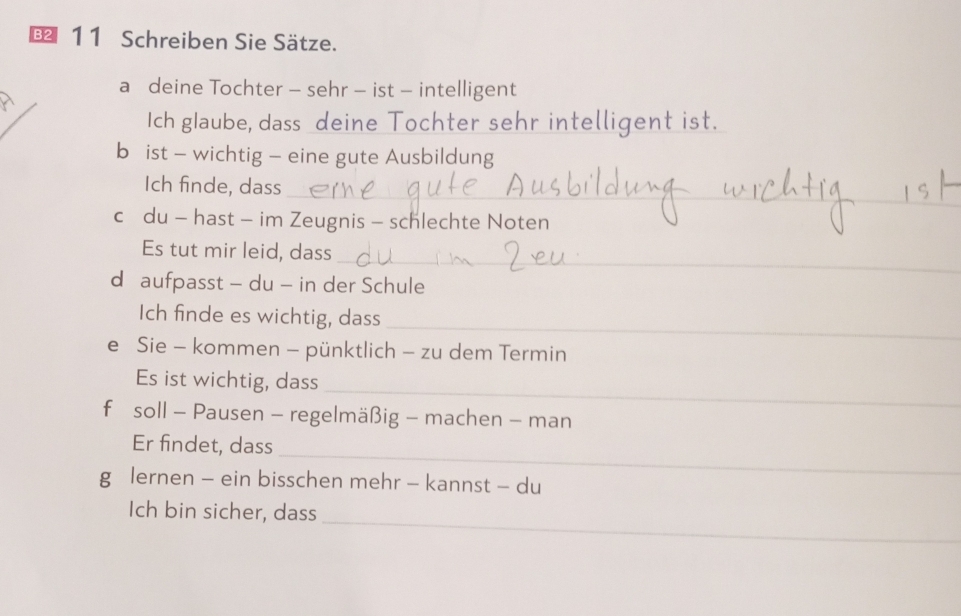 B2 11 Schreiben Sie Sätze.
a deine Tochter – sehr – ist – intelligent
Ich glaube, dass deine Tochter sehr intelligent ist.
b ist – wichtig – eine gute Ausbildung
Ich finde, dass eine gute Ausbildung wichtig ist
c du – hast – im Zeugnis – schlechte Noten
Es tut mir leid, dass du im Zeu
d aufpasst – du – in der Schule
Ich finde es wichtig, dass
e Sie – kommen – pünktlich – zu dem Termin
Es ist wichtig, dass
f soll – Pausen – regelmäßig – machen – man
Er findet, dass
g lernen – ein bisschen mehr – kannst – du
Ich bin sicher, dass